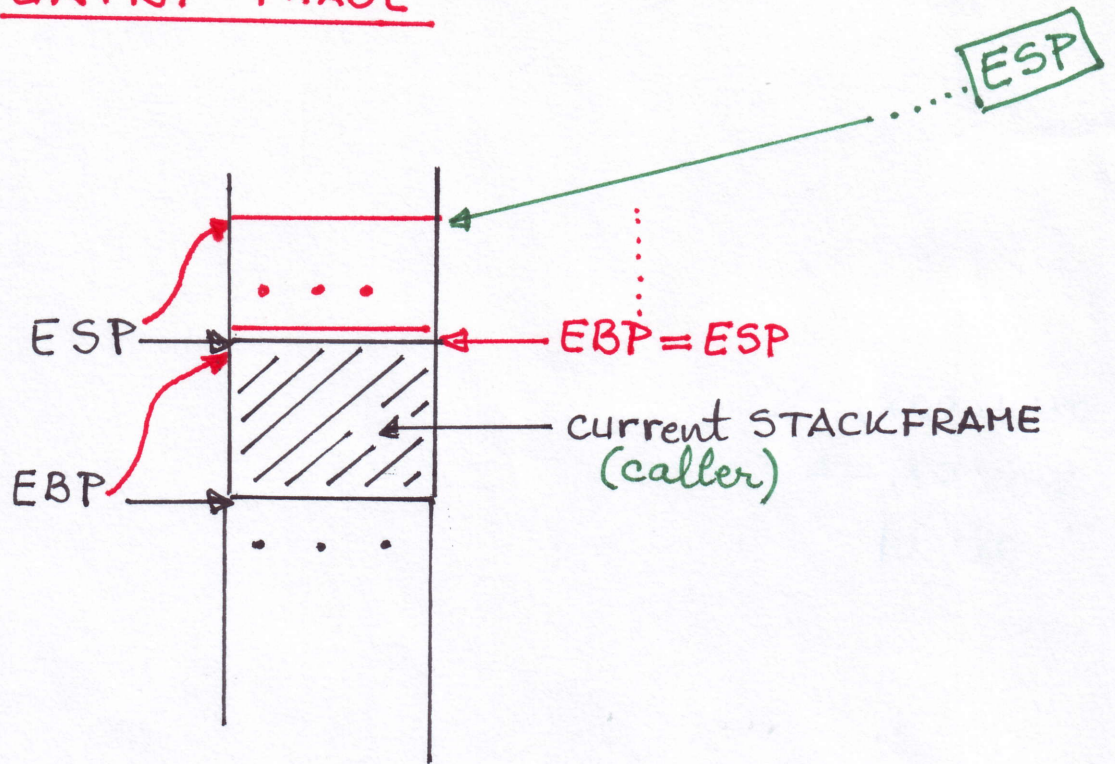 ESP
ESP
EBP = ESP
current STACKFRAME
(caller)
EBP